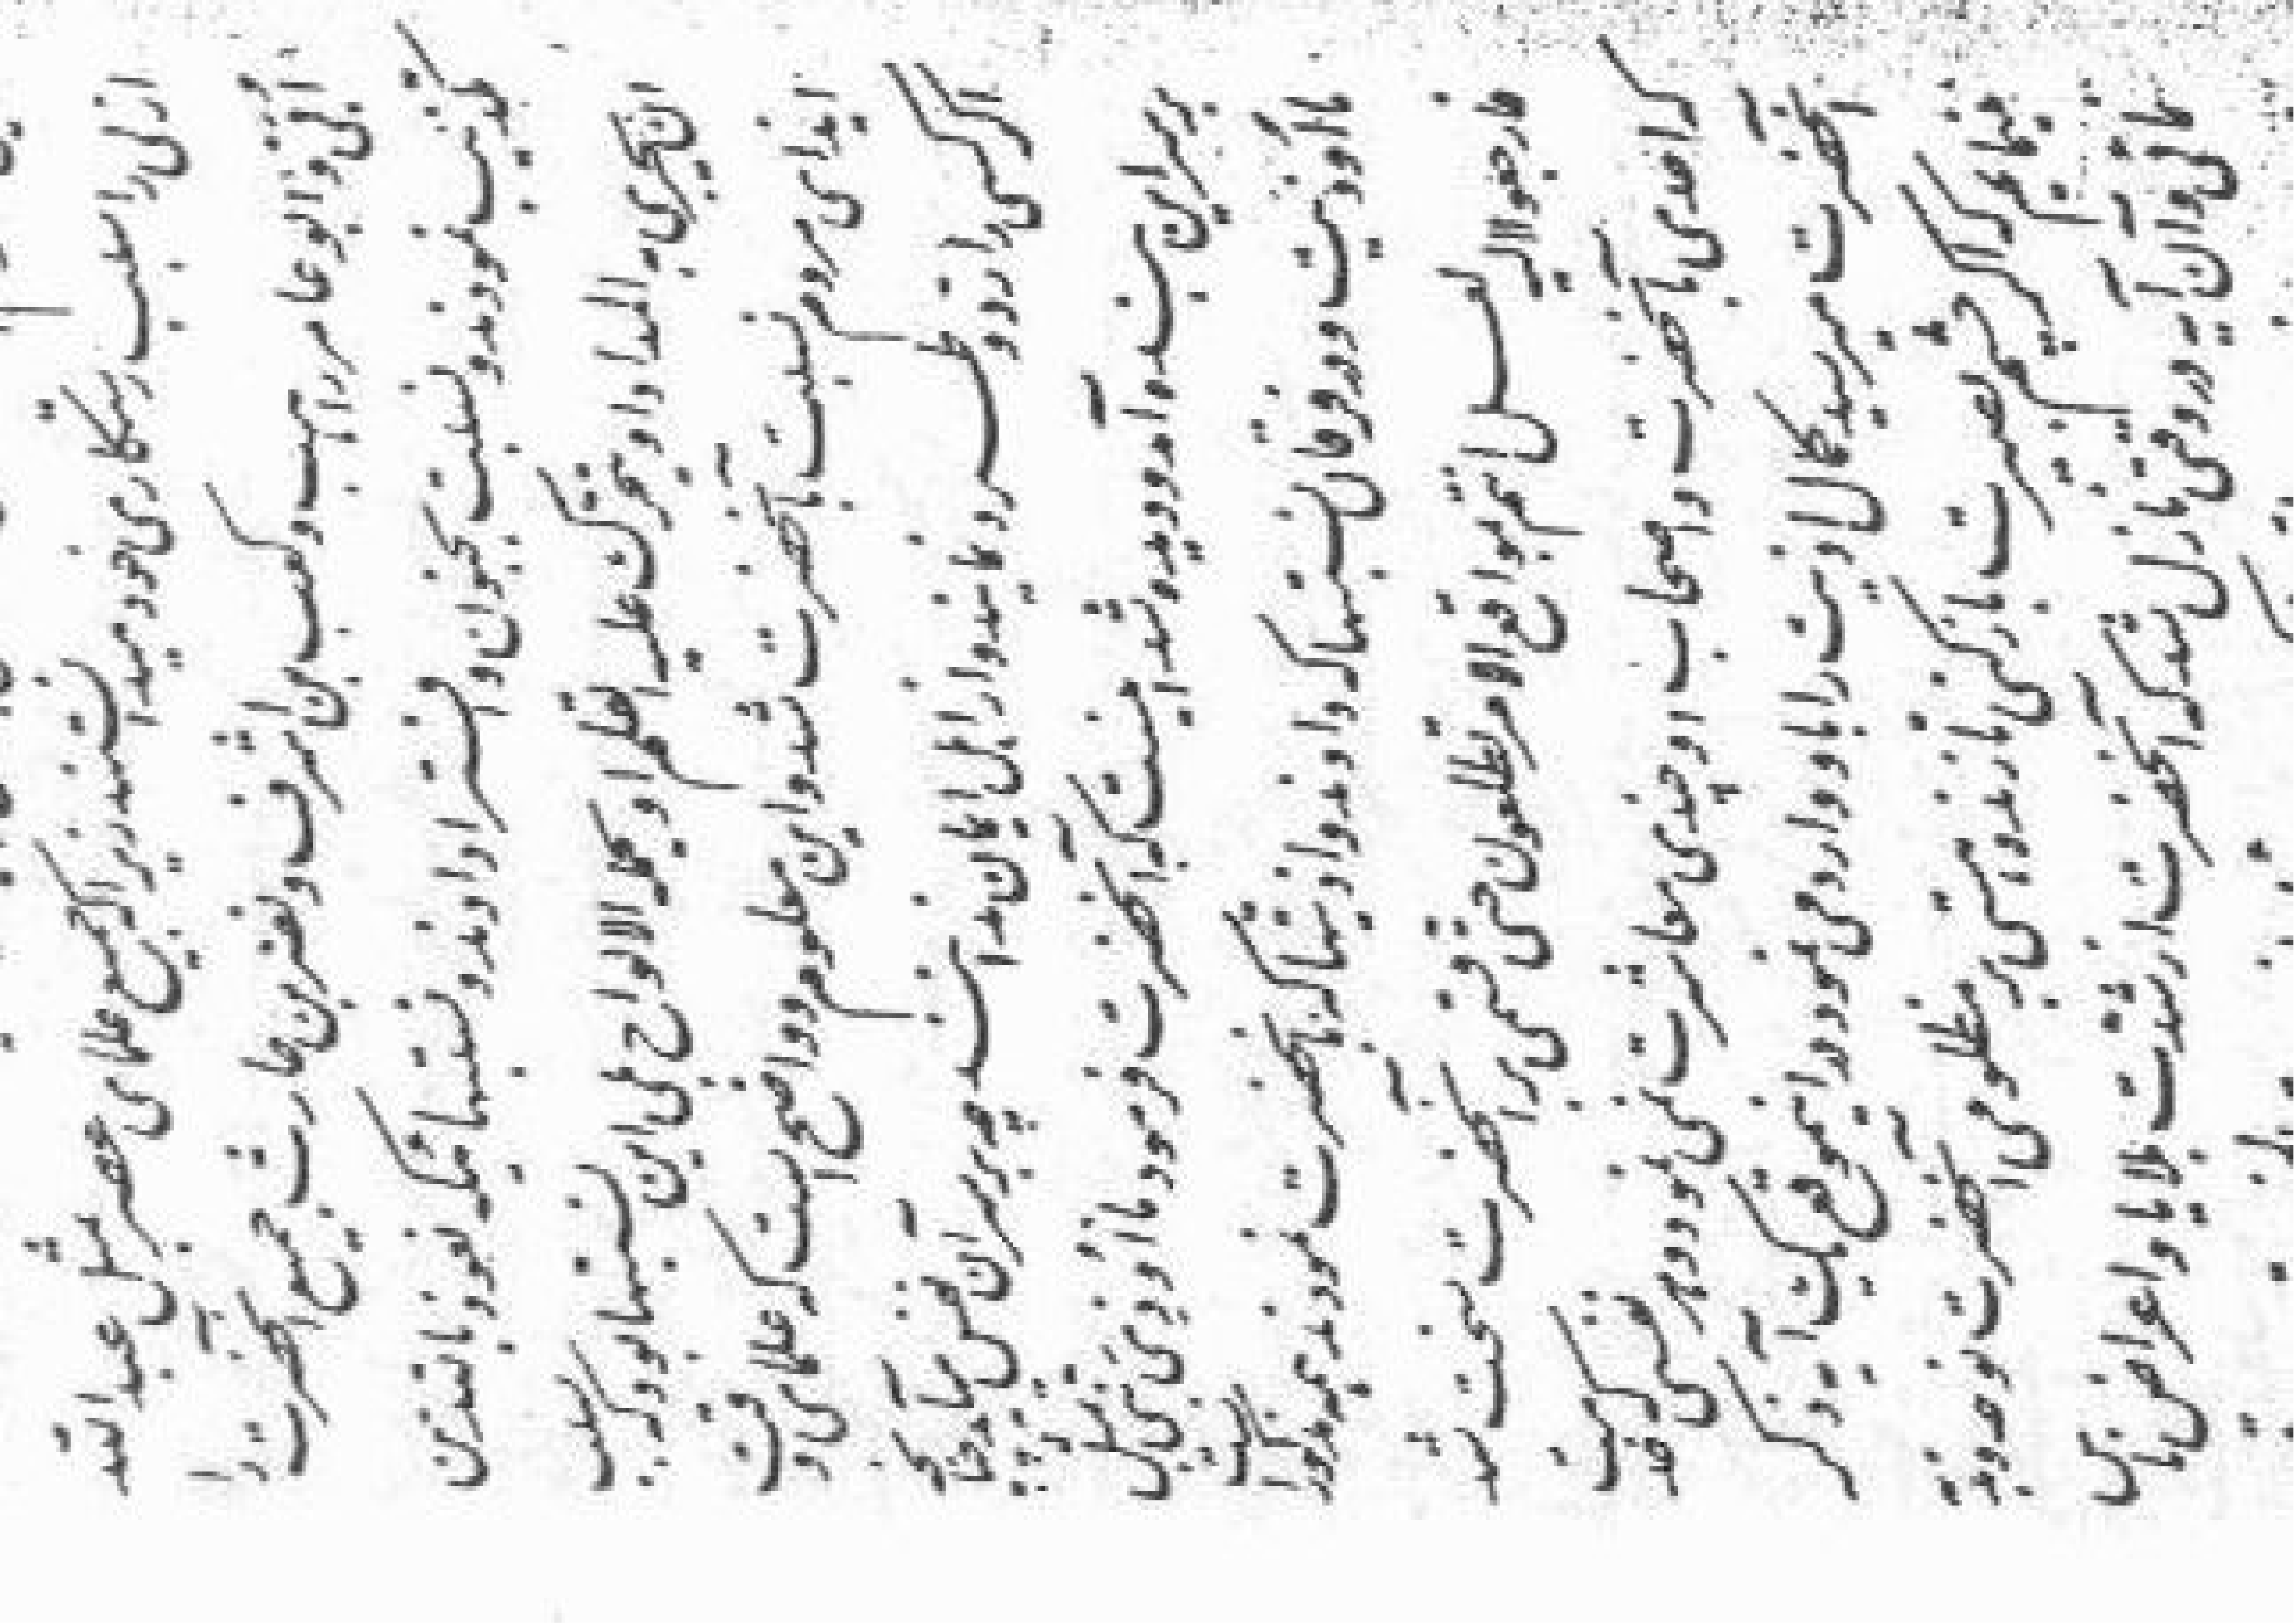 ازلی را سبب رستگاری خود میدانستند زیرا که جمیع علمای عصر مثل عبد الله
ابیّ و ابو عامر راهب و کعب بن اشرف و نضر بن حارث جمیع آنحضرت را
تکذیب نمودند و نسبت بجنون و افترا دادند و نسبتهائیکه نعوذ بالله من
ان یجری به المداد او یتحرک علیه القلم او یحمله الالواح بلی این نسبتها بود که سبب
ایذای مردم نسبت بآنحضرت شد و این معلوم و واضح است که علمای وقت
اگر کسی را رد و طرد نمایند و از اهل ایمان ندانند چه بر سر آن نفس میآید چنانچه
بر سر این بنده آمد و دیده شد اینست که آنحضرت فرمود ما اوذی نبی بمثل
ما اوذیت و در فرقان نسبتها که دادند و اذیتها که بآنحضرت نمودند همه مذکور است
فارجعوا الیه لعلکم بمواقع الامر تطلعون حتی قسمی بر آنحضرت سخت شد
که احدی با آنحضرت و اصحاب او چندی معاشرت نمی نمود و هر نفسی که خدمت
آنحضرت میرسید کمال اذیت را باو وارد می نمودند در اینموقع یک آیه ذکر
مینمایم که اگر چشم بصیرت باز کنی تا زنده هستی بر مظلومی آنحضرت نوحه و ندبه
نمائی و آن آیه در وقتی نازل شد که آنحضرت از شدت بلایا و اعراض ناس